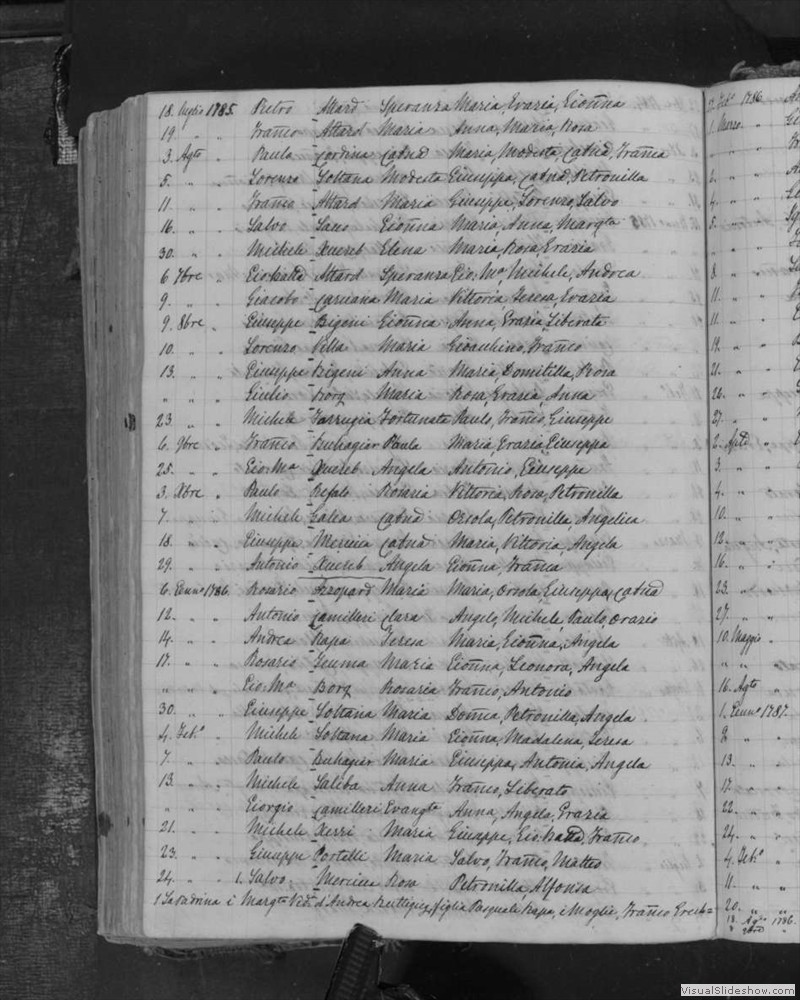 18. Luglio 1785. Pietro Attard Speranza Maria, Grazia, Gioñna
19. " " Franco Attard Maria Anna, Maria, Rosa
3. Agto " Paulo Cordina Catnã Maria, Modesta, Catnã, Franca
5. " " Lorenzo Soltana Modesta Giuseppa, Catnã, Petronilla
11. " " Franco Attard Maria Giuseppe, Lorenzo, Salvo
16. " " Salvo Gioñna Maria, Anna, Margta
30. " " Michele Xuereb Elena Maria, Rosa, Grazia
6. 7bre " Gio:Batta Attard Speranza Gio: Ma, Michele, Andrea
9. " " Giacobo Caruana Maria Vittoria, Teresa, Grazia
9. 8bre " Giuseppe Bigeni Gioñna Anna, Grazia, Liberata
10. " " Lorenzo Vella Maria Gioachino, Franco
13. " " Giuseppe Bigeni Anna Maria, Domitilla, Rosa
" " " Giulio Borg Maria Rosa, Grazia, Anna
23. " " Michele Farrugia Fortunata Paulo, Franco, Giuseppe
6. 9bre " Franco Buhagiar Paula Maria, Grazia, Giuseppa
25. " " Gio: Ma Xuereb Angela Antonio, Giuseppe
3. Xbre " Paulo Refalo Rosaria Vittoria, Rosa, Petronilla
7. " " Michele Galea Catnã Orsola, Petronilla, Angelica
18. " " Giuseppe Mercieca Catnã Maria, Vittoria, Angela
29. " " Antonio Xuereb Angela Gioñna, Franca
6. Genno 1786. Rosario Azzopard Maria Maria, Orsola, Giuseppa, Catnã
12. " " Antonio Camilleri Clara Angelo, Michele, Paulo, Orazio
14. " " Andrea Rapa Teresa Maria, Gioñna, Angela
17. " " Rosario Zeuma Maria Gioñna, Leonora, Angela
" " " Gio: Ma Borg Rosaria Franco, Antonio
30. " " Giuseppe Soltana Maria Domca, Petronilla, Angela
4. Febo " Michele Soltana Maria Gioñna, Madalena, Teresa
7. " " Paulo Buhagiar Maria Giuseppa, Antonia, Angela
13. " " Michele Saliba Anna Franco, Liberato
" " " Giorgio Camilleri Evangta Anna, Angela, Grazia
21. " " Michele Xerri Maria Giuseppe, Gio:Batta, Franco
23. " " Giuseppe Portelli Maria Salvo, Franco, Matteo
24. " " 1. Salvo Mercieca Rosa Petronilla, Alfonsa
1 La Padrina è Margta Veda d'Andrea figlia Pasquale Rapa, è Moglie, Franco
Febo 1786.
1. Marzo "
2. " "
4. " "
5. " "
" " "
8. " "
11. " "
11. " "
19. " "
21. " "
26. " "
27. " "
2. Aple "
3. " "
4. " "
10. " "
12. " "
16. " "
23. " "
27. " "
10. Maggio "
" " "
16. Agto "
1. Genno 1787.
2. " "
13. " "
17. " "
22. " "
24. " "
4. Febo "
11. " "
20. " "
18. Agto 1786.
VisualSlideshow.com